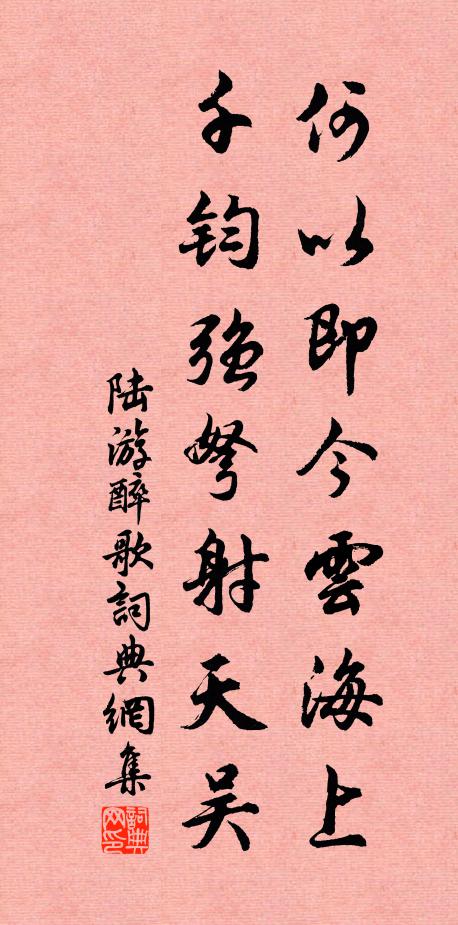 何以即今雲海上
千鈞強弩射天吴
陆游醉歌詞典網集
詞典网印